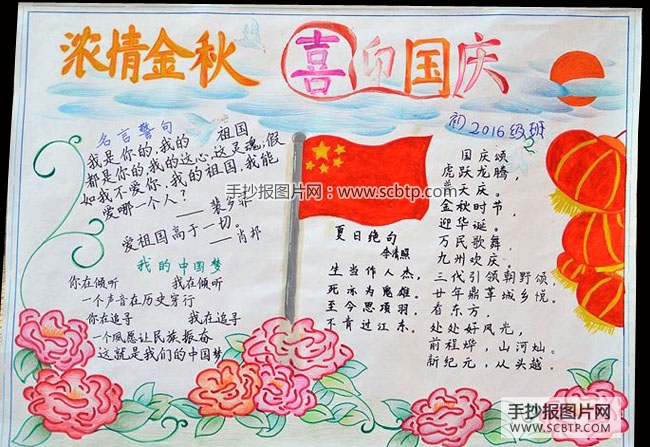 浓情金秋 喜迎国庆
初2016级班
名言警句
我是你的,我的 祖国
都是你的,我的这心,这灵魂,假
如我不爱你,我的祖国,我能
爱哪一个人?
——裴多菲
爱祖国高于一切。
——肖邦
我的中国梦
你在倾听 我在倾听
一个声音在历史穿行
你在追寻 我在追寻
一个夙愿让民族振奋
这就是我们的中国梦
手抄报图片网:www.scbtp.com
夏日绝句
李清照
生当作人杰,
死亦为鬼雄。
至今思项羽,
不肯过江东。
国庆颂
虎跃龙腾,
普天庆。
金秋时节,
迎华诞。
万民歌舞,
九州欢庆。
三代引领朝野颂,
廿年鼎革城乡悦。
看东方,
处处好风光,
前程烨,山河灿。
新纪元,从头越。
手抄报图片网
WWW.SCBTP.COM